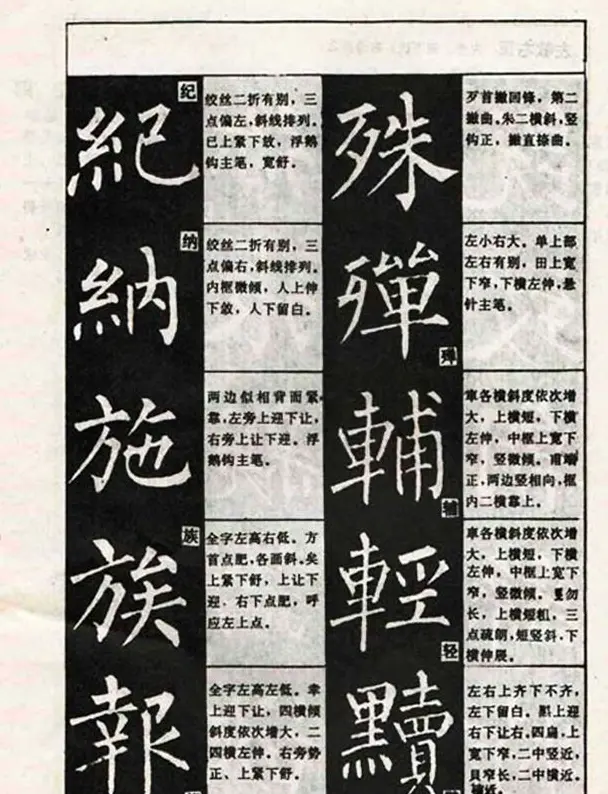 紀
纪
绞丝二折有别，三
点偏左，斜线排列。
已上紧下放，浮鹅
钩主笔，宽舒。
納
纳
绞丝二折有别，三
点偏右，斜线排列。
内框微倾，人上伸
下敛，人下留白。
施
两边似相背而紧
靠，左旁上迎下让，
右旁上让下迎。浮
鹅钩主笔。
族
族
全字左高右低。方
首点肥，各面斜。矣
上紧下舒，上让下
迎、右下点肥，呼
应左上点。
報
全字左高左低。幸
上迎下让，四横倾
斜度依次增大，二
四横左伸。右旁势
正、上紧下舒。
殊
歹首撇回锋，第二
撇曲。朱二横斜，竖
钩正，撇直捺曲。
殫
殚
左小右大。单上部
左右有别，田上宽
下窄，下横左伸，悬
针主笔。
輔
辅
車各横斜度依次增
大，上横短，下横
左伸，中框上宽下
窄，竖微倾。甫端
正，两边竖相向，框
内二横靠上。
輕
轻
車各横斜度依次增
大，上横短，下横
左伸，中框上宽下
窄，竖微倾。勿
长，上横短粗，三
点疏朗，短竖斜，下
横伸展。
黷
左右上齐下不齐，
左下留白。黑上迎
右下让右。四扁，上
宽下窄，二中竖近，
貝窄长，二中横近。